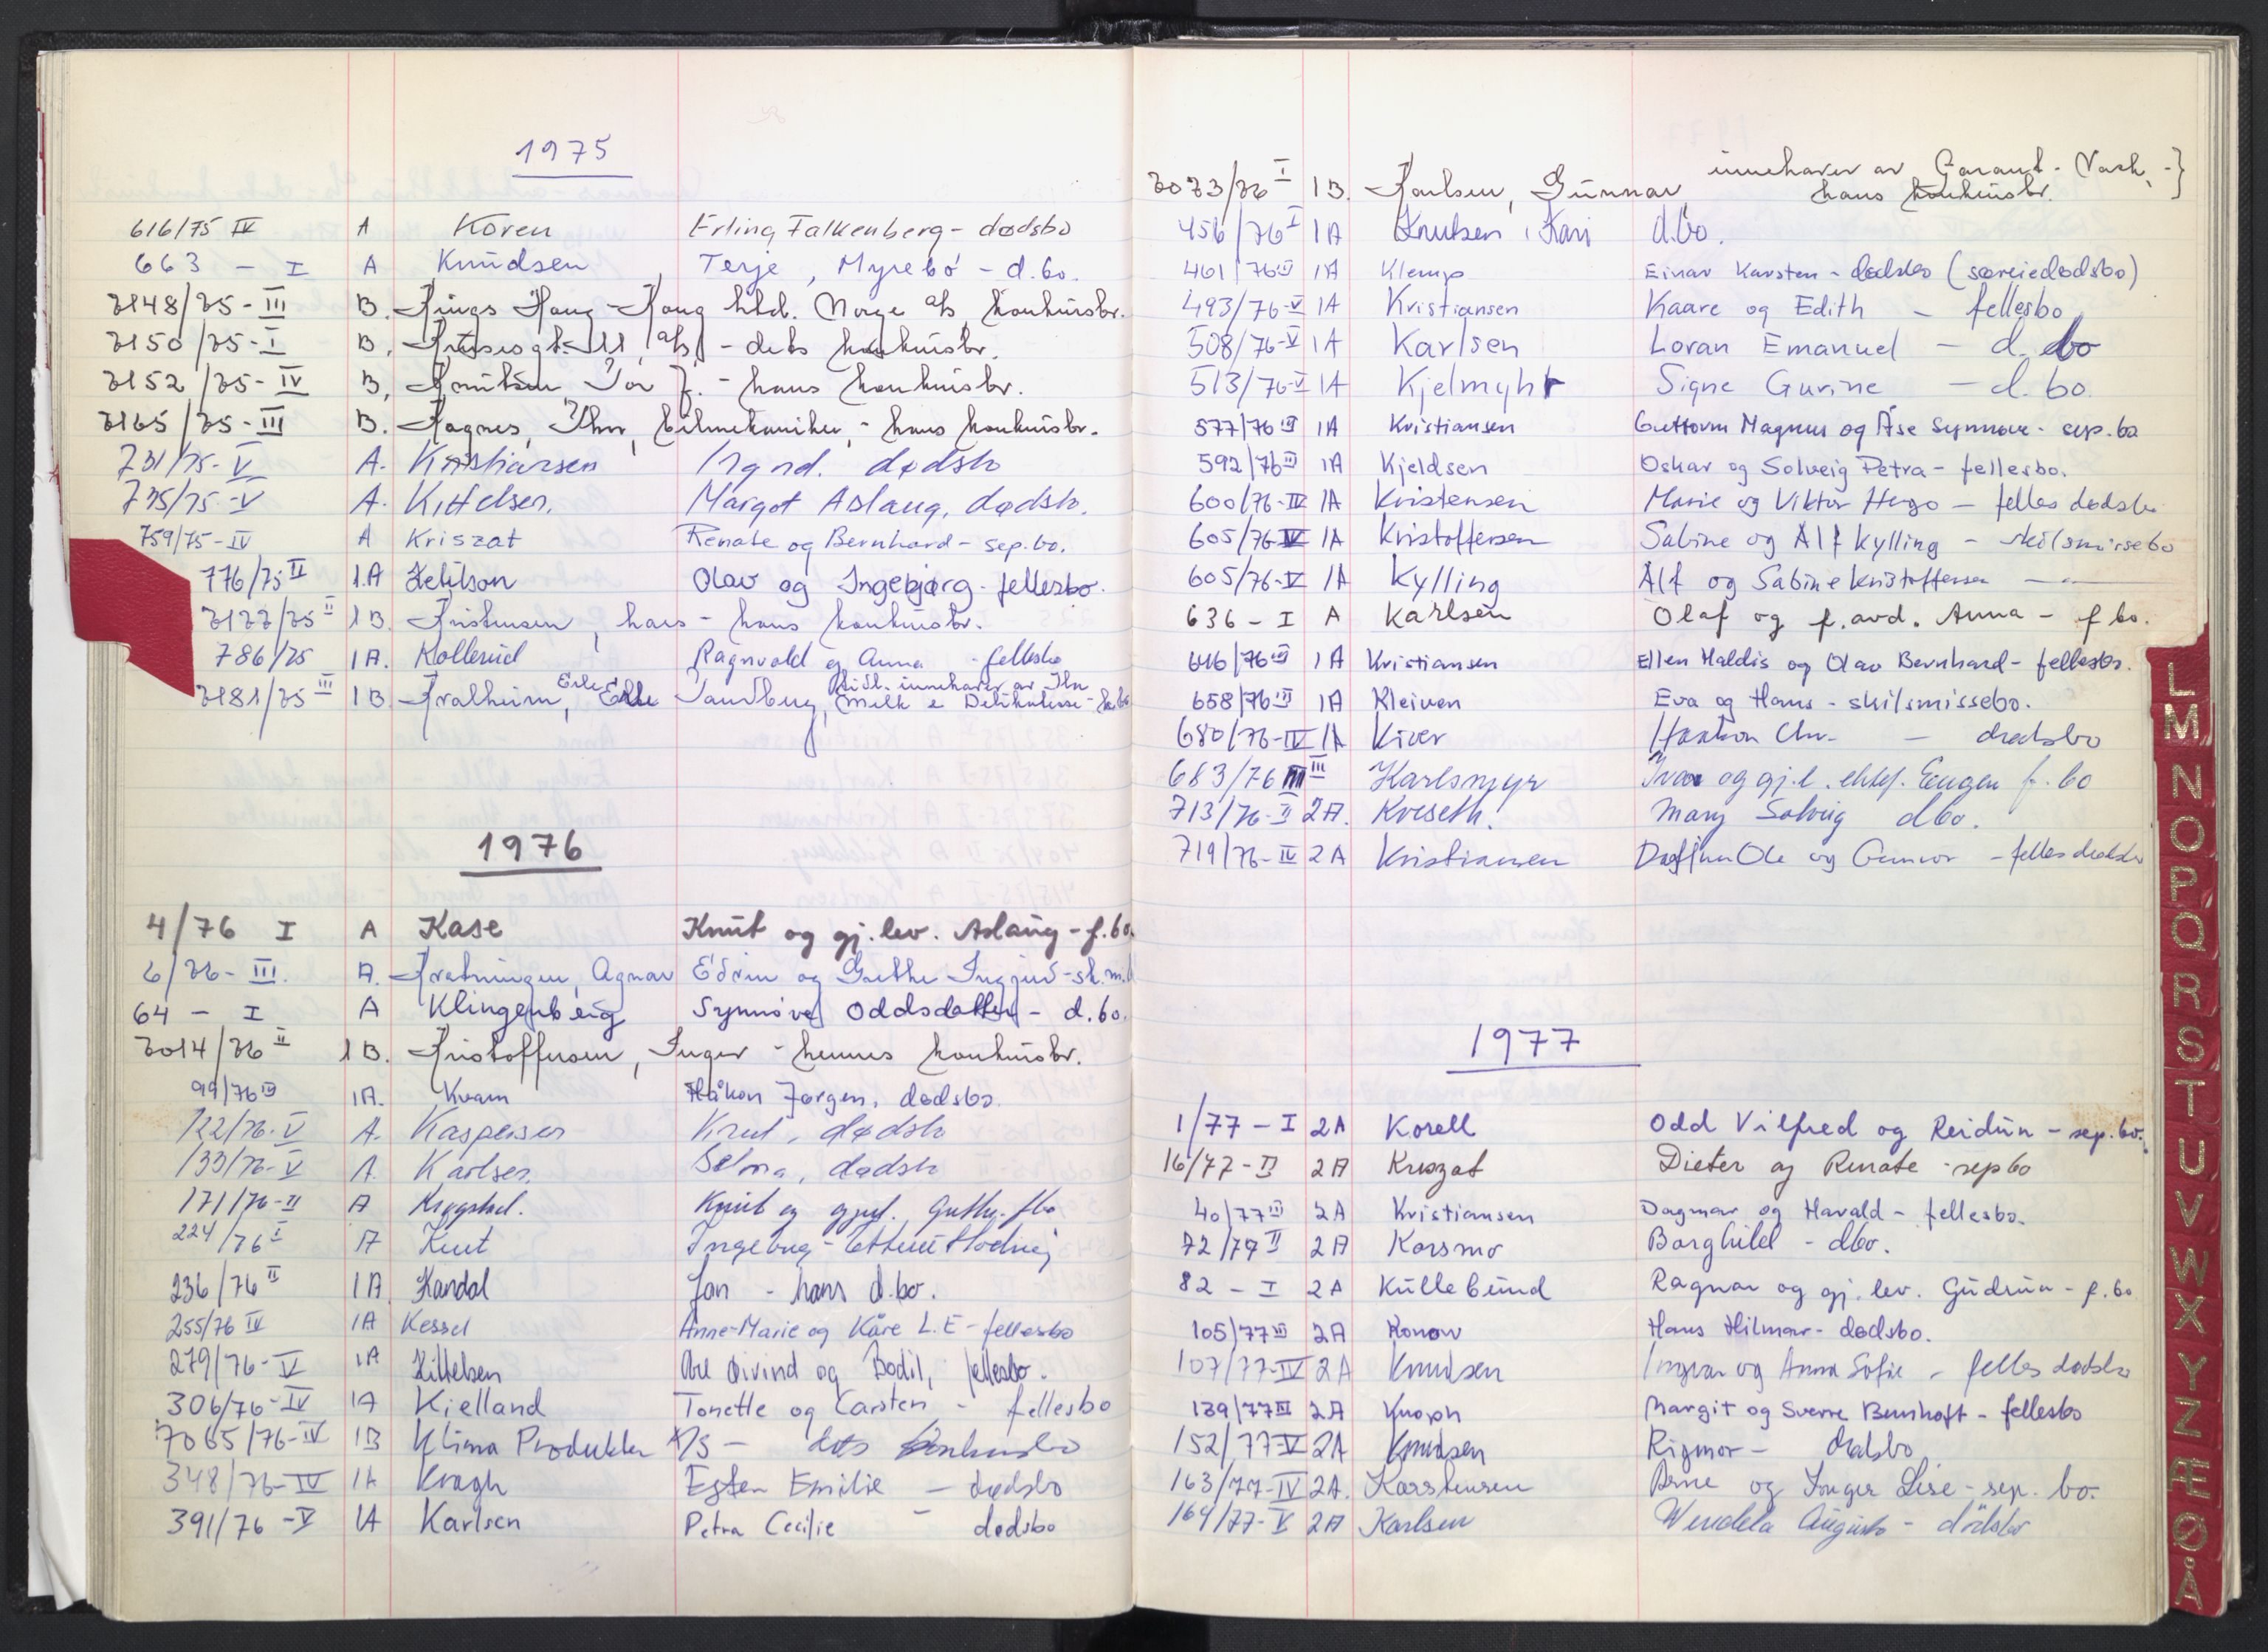 1975
616/75 IV A Koren Erling Falkenberg - dødsbo
663 - I A Knudsen, Terje, Myrebö - d.bo.
7148/75 - III B. Kings Hong-Kong Ltd. Norge a/s, konkursbr.
7150/75 - I B. a/s - dets konkursbr.
7152/75 - IV B, Knutsen Tor J. - hans konkursbr.
7165/75 - III B. Kognes, Thor, bilmekaniker, - hans konkursbr.
731/75 - V A. Kristiansen dødsbo
735/75 - V A. Kittelsen. Margot Aslaug, dødsbo.
759/75 - IV A Kriszat Renate og Bernhard - sep. bo.
776/75 II 1.A Ketilson Olav og Ingebjørg - fellesbo.
7177/75 II 1B. Kristensen, hans konkursbr.
786/75 1A. Kollerud Ragnvald og Anna - fellesbo
7181/75 III 1B Kvalheim, Erle Sandberg, tidl. innehaver av Thn Melk & Delikatesse -
1976
4/76 I A Kase Knut og gj.lev. Aslaug - f.bo.
6/76 - III. A. Agnar Edvin og Grethe
64 - I A Klingenberg Synnøve Oddsdatter - d.bo.
7014/76 II 1B. Kristoffersen, Inger - hennes konkursbr.
99/76 III 1A. Kvam Håkon Jørgen, dødsbo.
122/76 - V A. Kaspersen Knut, dødsbo
133/76 - V A. Karlsen. Selma, dødsbo
171/76 - II A Krogstad. Knut og fbo
224/76 I A Knut Ingeborg -
236/76 II 1A Kandal Jan - hans d.bo.
255/76 IV 1A Kessel Anne-Marie og Kåre L.E - fellesbo
279/76 - V 1A Kittelsen Øivind og Bodil, fellesbo.
306/76 - IV 1A Kielland Tonette og Carsten - fellesbo
7065/76 - IV 1B Klima Produkter A/S - dets konkursbo
348/76 - IV 1A Kragh Ester Emilie - dødsbo
391/76 - V 1A Karlsen Petra Cecilie - dødsbo
7073/76 I 1B. Karlsen, Gunnar, innehaver av Garant-Vask, - } hans konkursbr.
456/76 I 1A Knutsen, Kari d.bo.
461/76 III 1A Klemp Einar Karsten - dødsbo (særeiedødsbo)
493/76 - V 1A Kristiansen Kaare og Edith - fellesbo
508/76 - V 1A Karlsen Loran Emanuel - d. bo
513/76 - V 1A Kjelmyhr Signe Gurine - d. bo.
577/76 III 1A Kristiansen Guttorm Magnus og Åse Synnøve - sep. bo
592/76 III 1A Kjeldsen Oskar og Solveig Petra - fellesbo.
600/76 - IV 1A Kristensen Marie og Viktor Hugo - felles dødsbo
605/76 IV 1A Kristoffersen Sabine og Alf Kylling - skilsmissebo
605/76 - V 1A Kylling Alf og Sabine Kristoffersen - " -
636 - I A Karlsen Olaf og f. avd. Anna - f bo.
646/76 III 1A Kristiansen Ellen Haldis og Olav Bernhard - fellesbo.
658/76 III 1A Kleiven Eva og Hans - skilsmissebo.
680/76 - IV 1A Kiver Haakon Chr. - dødsbo
683/76 III Karlsmyr Ivar og gj.l. ektef. Eugen f. bo
713/76 - II 2A. Kveseth. Mary Solveig dbo.
719/76 - IV 2A Kristiansen Dagfinn Ole og Gunvor - felles dødsbo
1977
1/77 - I 2A Korell Odd Vilfred og Reidun - sep. bo.
16/77 - II 2A Kriszat Dieter og Renate - sep bo
40/77 III 2A Kristiansen Dagmar og Harald - fellesbo.
72/77 II 2A Korsmo Borghild - dbo.
82 - I 2A Kullebund Ragnar og gj. lev. Gudrun - f. bo
105/77 III 2A Konow Hans Hilmar - dødsbo.
107/77 - IV 2A Knudsen Ingvar og Anna Sofie - felles dødsbo
139/77 III 2A Knoph Margit og Sverre Bernhoft - fellesbo
152/77 V 2A Knudsen Rigmor - dødsbo
163/77 - IV 2A. Karstensen Arne og Inger Lise - sep. bo.
164/77 - V 2A Karlsen Wendela Augusta - dödsbo
L
M
N
O
P
Q
R
S
T
U
V
W
X
Y
Z
Æ
Ø
Å